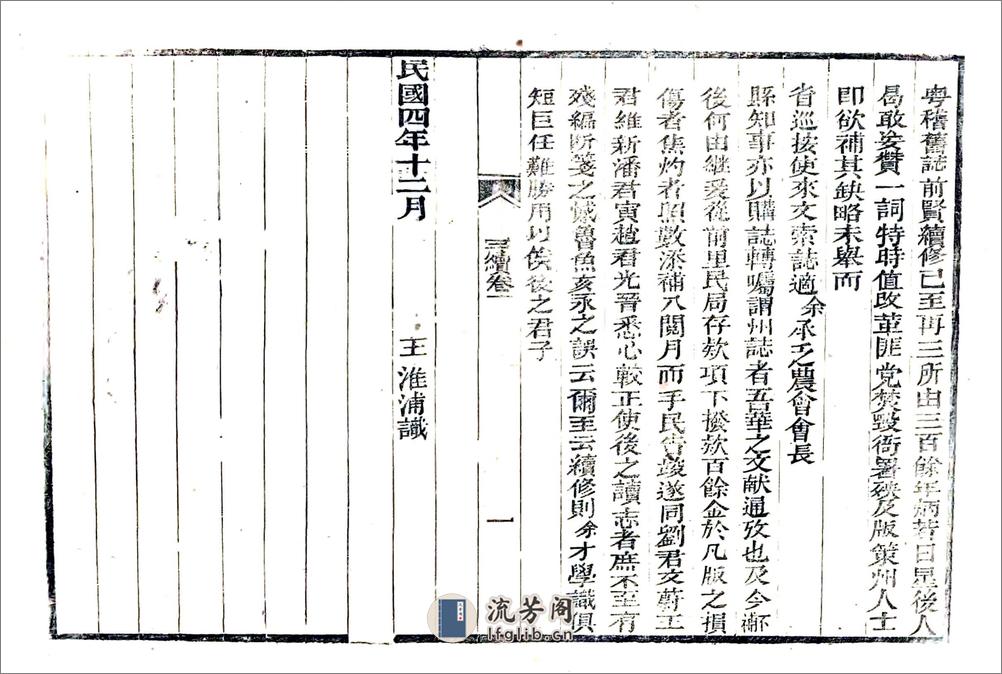 粵稽舊誌前賢續修已至再三所由三百餘年炳若日星後人
曷敢妄贊一詞特時值改革匪党焚毀衙署殃及版策州人士
即欲補其缺略未舉而
省巡按使來文索誌適余承乏農會會長
縣知事亦以購誌轉囑謂州誌者吾華之文献通攷也及今不補
後何由継爰從前里民局存欸項下撥欸百餘金於凡版之損
傷者集灼者照数添補八閱月而手民告竣遂同劉君文蔚王
君維新潘君寅趙君光晉悉心較正使後之讀志者庶不至有
殘編斷箋之憾魯魚亥豕之誤云爾至云續修則余才學識俱
短巨任難勝用以俟後之君子
三續卷一
一
民國四年十二月
王淮浦識
流芳阁
lfglib.cn